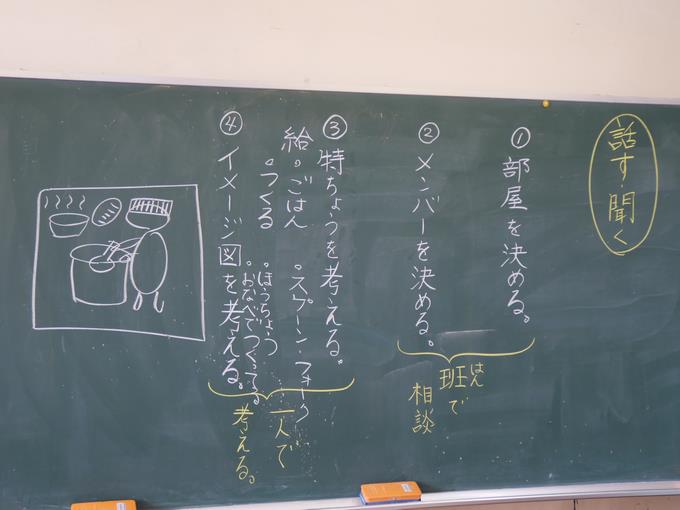 話す・聞く
①部屋を決める。
②メンバーを決める。
班で
はん
相談
③特ちょうを考える。
給。ごはん
。スプーン・フォーク
。つくる
。ほうちょう
。おなべでつくってる
④イメージ図を考える。
一人で
考える。